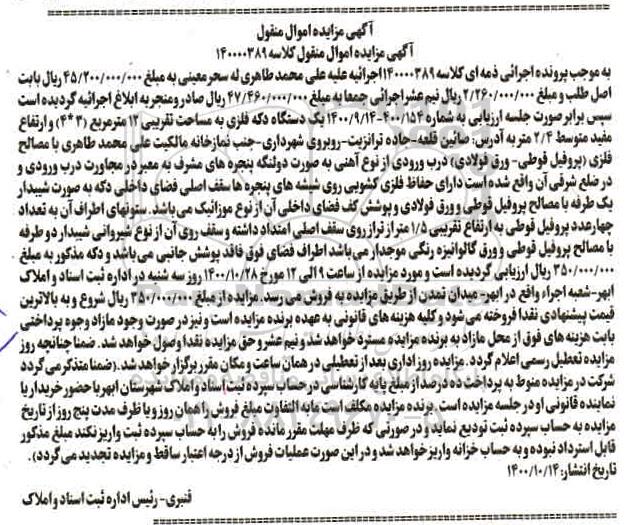 آگهی مزایده اموال منقول
آگهی مزایده اموال منقول کلاسه ۱۴۰۰۰۰۳۸۹
به موجب پرونده اجرائی ذمه ای کلاسه ۱۴۰۰۰۰۳۸۹ اجرائیه علیه علی محمد طاهری له سحر معینی به مبلغ ۴۵/۲۰۰/۰۰۰/۰۰۰ ریال بابت
اصل طلب و مبلغ ۲/۲۶۰/۰۰۰/۰۰۰ ریال نیم عشر اجرائی جمعا به مبلغ ۴۷/۴۶۰/۰۰۰/۰۰۰ ریال صادر و منجر به ابلاغ اجرائیه گردیده است
سپس برابر صورت جلسه ارزیابی به شماره ۴۰۰/۱۵۴-۱۴۰۰/۹/۱۴ یک دستگاه دکه فلزی به مساحت تقریبی ۱۲ مترمربع (۳*۴) و ارتفاع
مفید متوسط ۲/۴ متر به آدرس: صائین قلعه-جاده ترانزیت-روبروی شهرداری-جنب نمازخانه مالکیت علی محمد طاهری با مصالح
فلزی (پروفیل قوطی- ورق فولادی) درب ورودی از نوع آهنی به صورت دولنگه پنجره های مشرف به معبر در مجاورت درب ورودی و
در ضلع شرقی آن واقع شده است دارای حفاظ فلزی کشویی روی شیشه های پنجره ها سقف اصلی فضای داخلی دکه به صورت شیبدار
یک طرفه با مصالح پروفیل قوطی و ورق فولادی و پوشش کف فضای داخلی آن از نوع موزائیک می باشد. ستونهای اطراف آن به تعداد
چهار عدد پروفیل قوطی به ارتفاع تقریبی ۱/۵ متر از تراز روی سقف اصلی امتداد داشته و سقف روی آن از نوع شیروانی شیبدار دو طرفه
با مصالح پروفیل قوطی و ورق گالوانیزه رنگی موجدار می باشد اطراف فضای فوق فاقد پوشش جانبی می باشد و دکه مذکور به مبلغ
۳۵۰/۰۰۰/۰۰۰ ریال ارزیابی گردیده است و مورد مزایده از ساعت ۹ الی ۱۲ مورخ ۱۴۰۰/۱۰/۲۸ روز سه شنبه در اداره ثبت اسناد و املاک
ابهر-شعبه اجراء واقع در ابهر-میدان تمدن از طریق مزایده به فروش می رسد. مزایده از مبلغ ۳۵۰/۰۰۰/۰۰۰ ریال شروع و به بالاترین
قیمت پیشنهادی نقدا فروخته می شود و کلیه هزینه های قانونی به عهده برنده مزایده است و نیز در صورت وجود مازاد وجوه پرداختی
بابت هزینه های فوق از محل مازاد به برنده مزایده مسترد خواهد شد و نیم عشر و حق مزایده نقدا وصول خواهد شد. ضمنا چنانچه روز
مزایده تعطیل رسمی اعلام گردد. مزایده روز اداری بعد از تعطیلی در همان ساعت و مکان مقرر برگزار خواهد شد. (ضمنا متذکر می گردد
شرکت در مزایده منوط به پرداخت ده درصد از مبلغ پایه کارشناسی در حساب سپرده ثبت اسناد و املاک شهرستان ابهر با حضور خریدار یا
نماینده قانونی او در جلسه مزایده است. برنده مزایده مکلف است مابه التفاوت مبلغ فروش را همان روز و یا ظرف مدت پنج روز از تاریخ
مزایده به حساب سپرده ثبت تودیع نماید و در صورتی که ظرف مهلت مقرر مانده فروش را به حساب سپرده ثبت واریز نکند مبلغ مذکور
قابل استرداد نبوده و به حساب خزانه واریز خواهد شد و در این صورت عملیات فروش از درجه اعتبار ساقط و مزایده تجدید می گردد).
تاریخ انتشار: ۱۴۰۰/۱۰/۱۴
قنبری- رئیس اداره ثبت اسناد و املاک